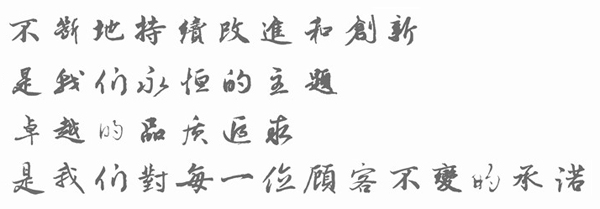 不斷地持續改進和創新
是我们永恒的主题
卓越的品质追求
是我们對每一位顧客不變的承诺